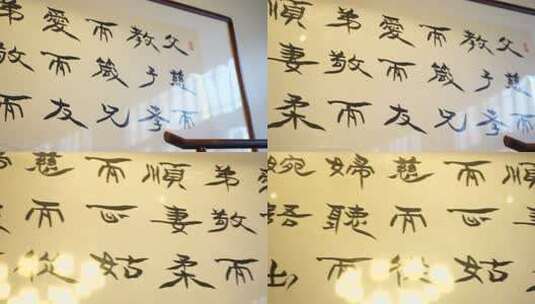 父慈而
教子孝
而箴兄
愛而友
而
父慈而
教子孝
而箴兄
愛而友
弟敬而
順妻柔
弟敬而
順妻柔
而正姑
慈而從
順
而正姑
慈而從
婦聽而
婉